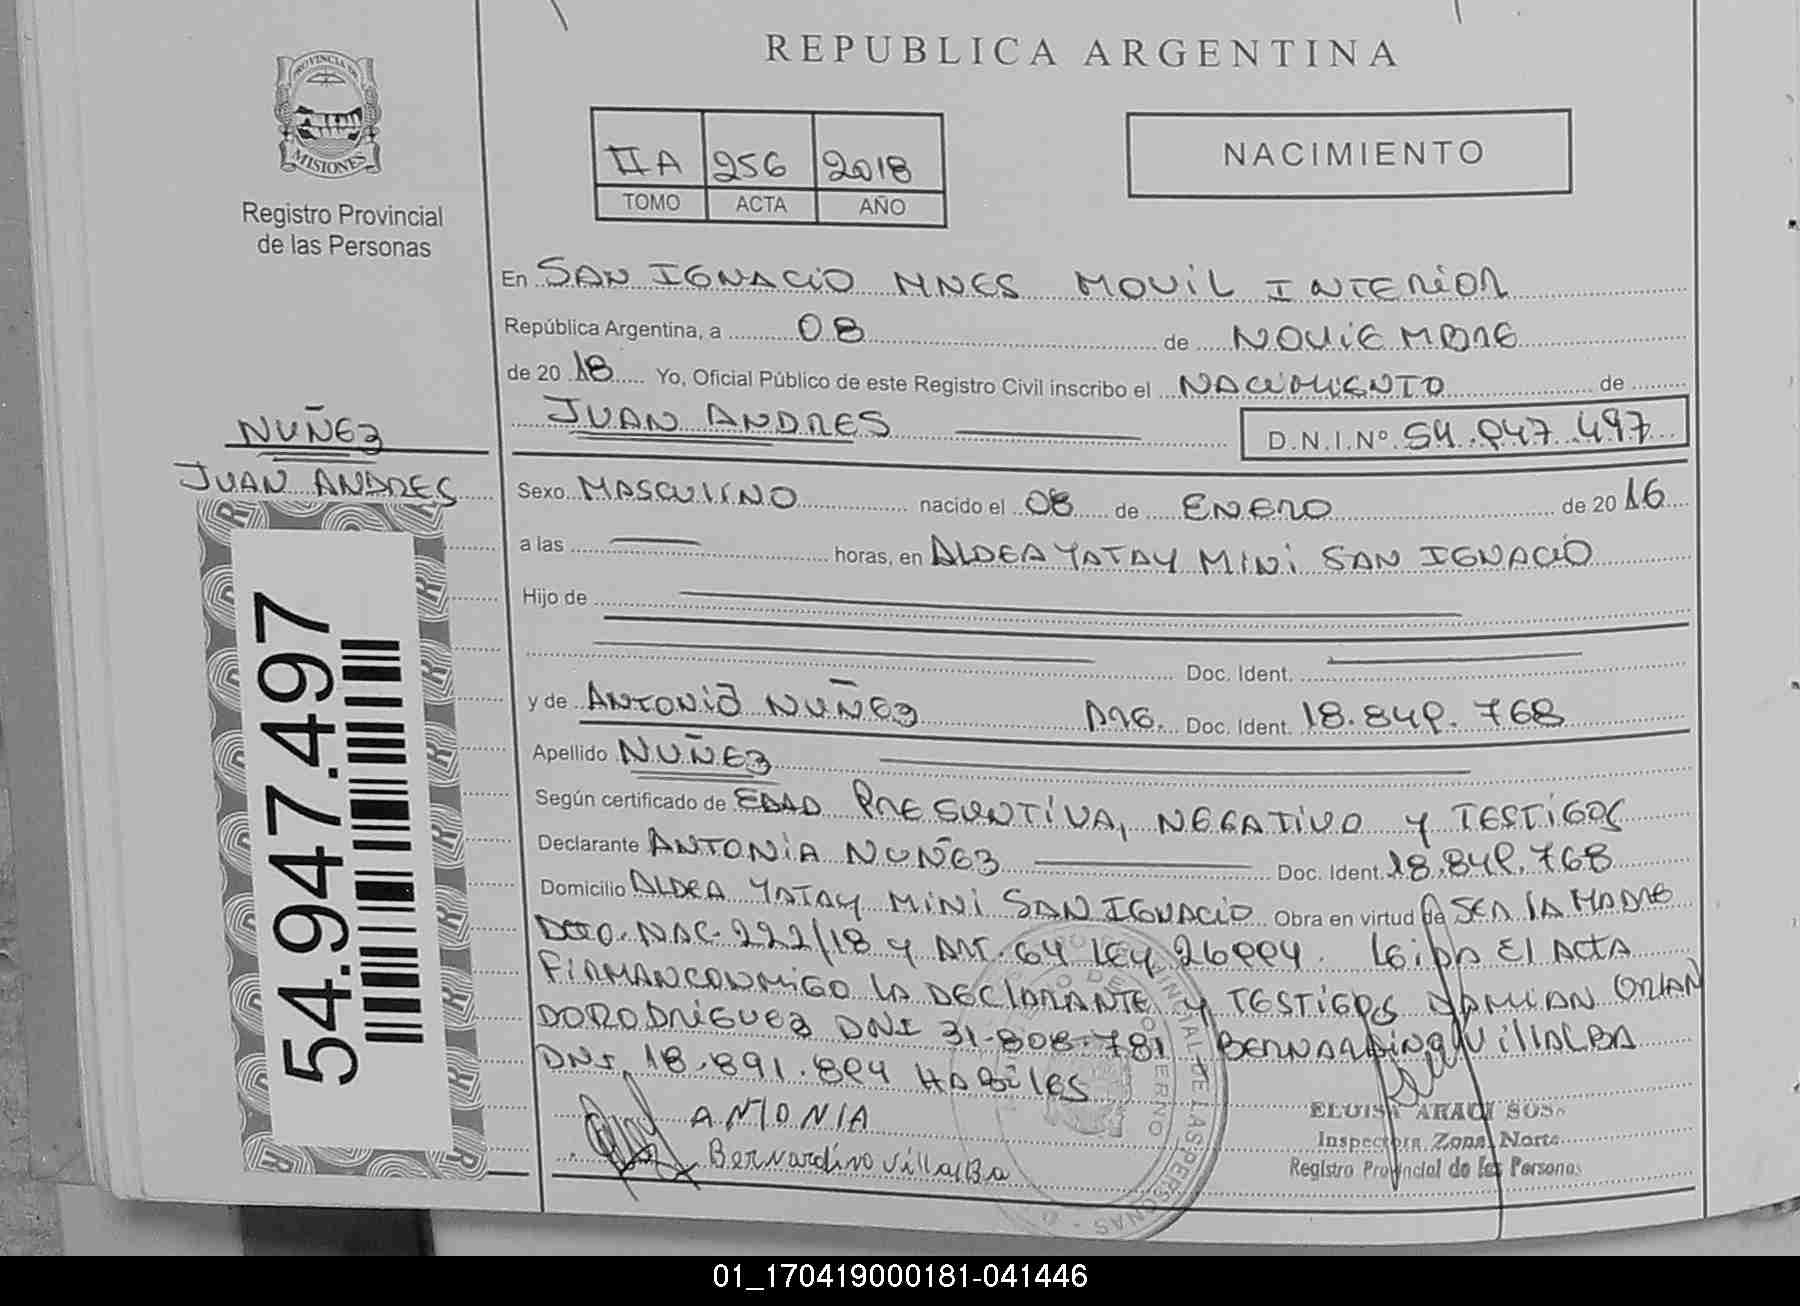 REPUBLICA ARGENTINA
PROVINCIA DE
MISIONES
Registro Provincial
de las Personas
IIA 256 2018
TOMO ACTA AÑO
NACIMIENTO
En SAN IGNACIO MNES MOVIL INTERIOR
República Argentina, a 08 de NOVIEMBRE
de 2018 Yo, Oficial Público de este Registro Civil inscribo el NACIMIENTO de
JUAN ANDRES D.N.I.Nº 54.947.497
NUÑEZ
JUAN ANDRES
Sexo MASCULINO nacido el 08 de ENERO de 2016
a las horas, en ALDEA YATAY MINI SAN IGNACIO
Hijo de
Doc. Ident.
y de ANTONIA NUÑEZ ARG. Doc. Ident. 18.849.768
Apellido NUÑEZ
Según certificado de EDAD PRESUNTIVA, NEGATIVO Y TESTIGOS
Declarante ANTONIA NUÑEZ Doc. Ident. 18.849.768
Domicilio ALDEA YATAY MINI SAN IGNACIO Obra en virtud de SER LA MADRE
DCTO. NAC. 222/18 Y ART. 64 LEY 26994. LEIDA EL ACTA
FIRMAN CONMIGO LA DECLARANTE Y TESTIGOS DAMIAN ORLAN
DO RODRIGUEZ DNI 31.808.781 BERNARDINO VILLALBA
DNI 18.891.894 HABILES
ANTONIA
Bernardino VillalBa
ELOISA ARAUJ SOSA
Inspectora Zona Norte
Registro Provincial de las Personas
54.947.497
01_170419000181-041446